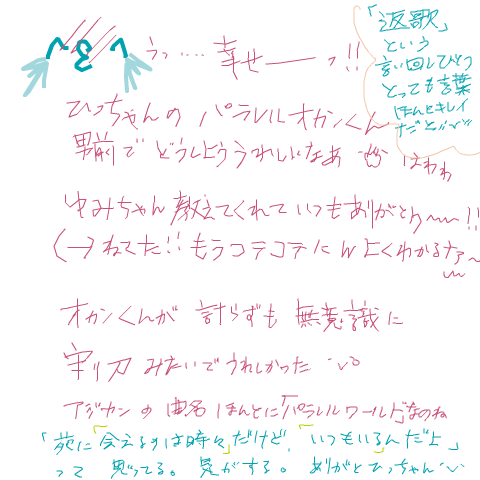 うっ‥‥幸せーーっ!!
「返歌」
という
言い回しひとつ
とっても言葉
ほんとキレイ
だと
ひっちゃんの パラレルオカンくん
男前で どうしようううれしいなあ はわわ
ゆみちゃん教えてくれていつもありがとう〜〜!!
(→ねてた!!もうコテコテにw よくわかるナァ〜
オカンくんが 計らずも 無意識に
守り刀 みたいでうれしかった
アジカンの曲名 ほんとに「パラレルワールド」なのね
「苑に会えるのは時々だけど、いつもいるんだよ」
って 思ってる。気がする。ありがとひっちゃん